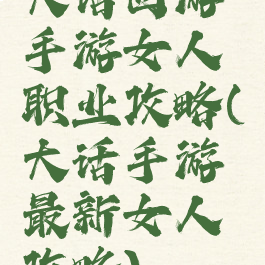 大话西游
手游女人
职业攻略(
大话手游
最新女人
攻略)